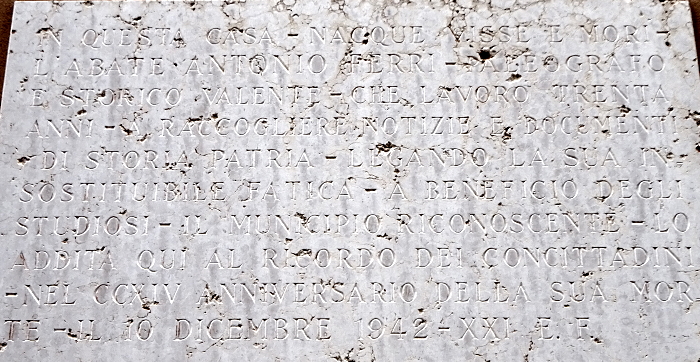 IN QUESTA CASA - NACQUE VISSE E MORI -
L'ABATE ANTONIO FERRI - PALEOGRAFO
E STORICO VALENTE - CHE LAVORÒ TRENTA
ANNI - A RACCOGLIERE NOTIZIE E DOCUMENTI
- DI STORIA PATRIA - LEGANDO LA SUA IN_
SOSTITUIBILE FATICA - A BENEFICIO DEGLI
STUDIOSI - IL MUNICIPIO RICONOSCENTE - LO
ADDITA QUI AL RICORDO DEI CONCITTADINI
- NEL CCXIV ANNIVERSARIO DELLA SUA MOR_
TE - IL 10 DICEMBRE 1942 - XXI E. F.